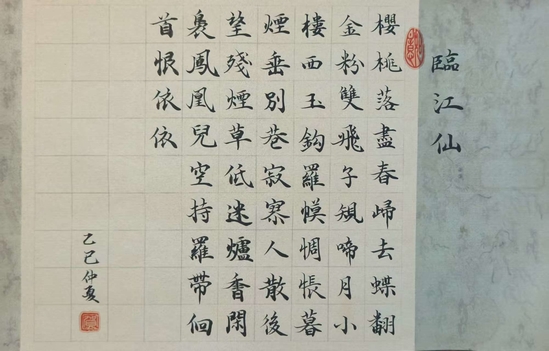 臨江仙
櫻桃落盡春歸去蝶翻
金粉雙飛子規啼月小
樓西玉鈎羅幙惆悵暮
煙垂別巷寂寥人散後
望殘煙草低迷爐香閑
裊鳳凰兒空持羅帶佪
首恨依依
乙巳仲夏